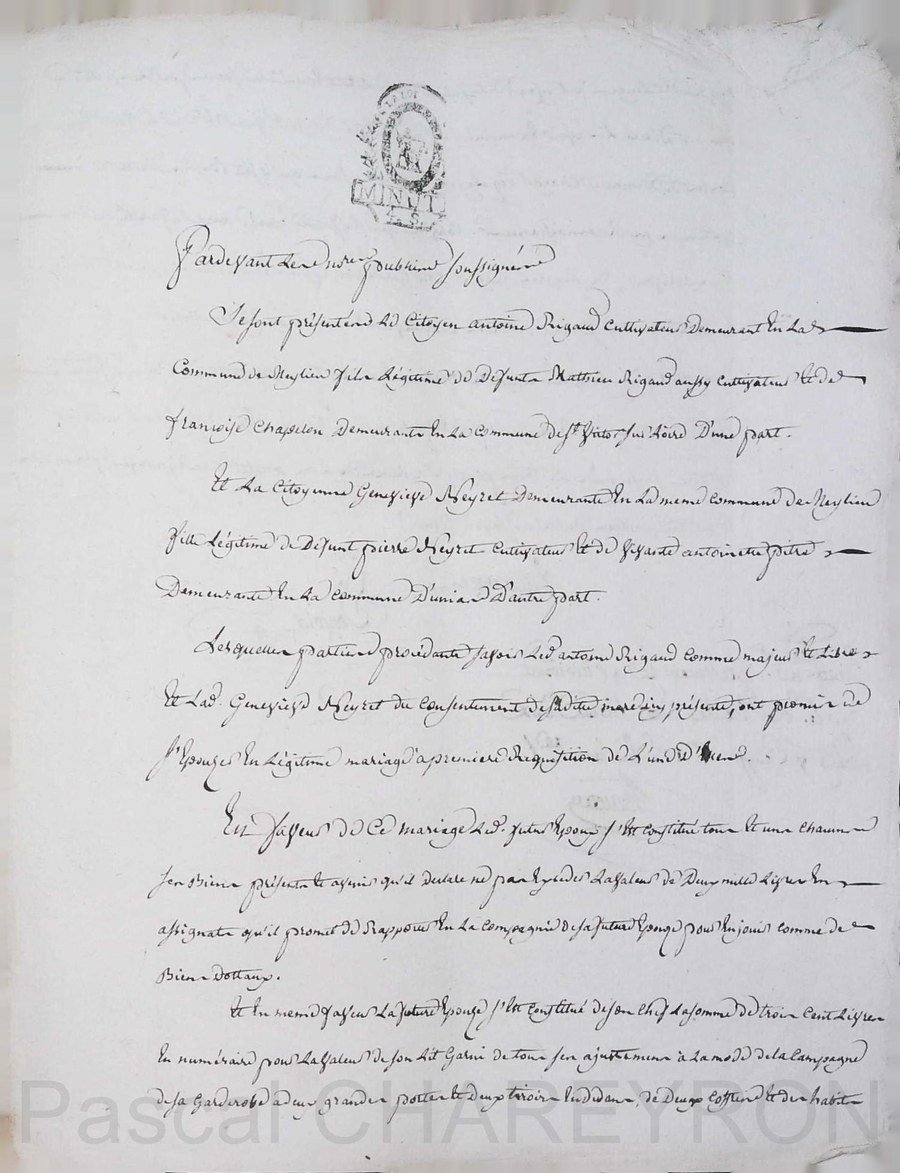 LA LOI
MINUT
4. S.
Pardevant Les nore. publics soussignés
Se sont présentés Le Citoyen antoine Rigaud Cultivateur Demeurant En La
Commune de Meylieu fils Légitime de Defunts Mathieu Rigaud aussy Cultivateur Et de
françoise Chapelon Demeurante En La Commune de St. Victor sur Loire D'une part.
Et La Citoyenne Genevieve Neyret Demeurante En La meme Commune de Meylieu
fille Légitime de Defunt pierre Neyret Cultivateur Et de vivante antoinette pitre
Demeurante En La Commune D'unias D'autre part.
Lesquelles parties procédantes savoir Led. antoine Rigaud Comme majeur Et Libre
Et Lad. Genevieve Neyret du Consentement de sadite mere icy présente, ont promis de
s'Epouzer En Légitime mariage a premiere Requisition de L'un d'Eux.
En faveur de Ce mariage Led. futur Epoux s'Est Constitué tous Et un chacuns
ses Biens présents Et avenir qu'il declare ne pas Exceder La valeur de Deux mille Livres En
assignats qu'il promet de Rapporter En La Compagnie de sa future Epouze pour En jouir comme de
Biens Dottaux.
Et En meme faveur La future Epouze s'Est Constitué de son Chef La somme de trois Cent Livres
En numéraire pour La valeur de son Lit Garni de tous ses ajustemens a La mode de la Campagne
de sa Garderobe a deux grandes portes Et Deux tiroirs En dedans, de Deux Coffres Et des habits
Pascal CHAREYRON